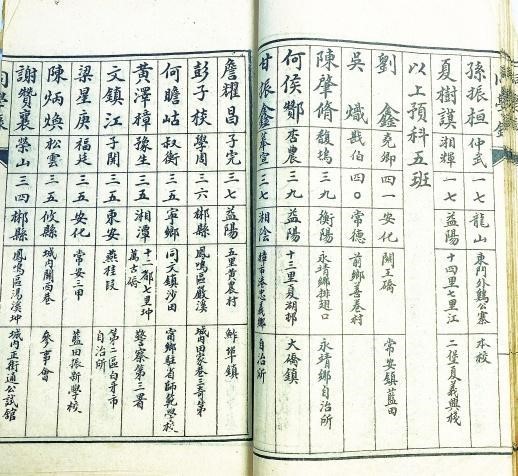 孫振桓 仲武 一七 龍山 東門外 本校
夏樹謨 湘輝 一七 益陽 十四里七里江 二堡夏義興棧
以上預科五班
劉鑫 克卿 四一 安化 關王橋 常安鎮藍田
吳熾 戡伯 四〇 常德 前鄉善卷村
陳肇脩 馥塢 三九 衡陽 永靖鄉排廷口 永靖鄉自治所
何侯酇 杏農 三九 益陽 十三里夏湖邨 大橋鎮
甘振鑫 三七 湘陰 鄉自治所
詹耀昌 子完 三七 益陽 五里黃農村 鮓埠鎮
彭子棪 學周 三六 郴縣 鳳鳴區嚴溪 城內田家巷三奇第
何瞻岵 叔衡 三五 寧鄉 同文鎮沙田 甯鄉駐省師範學校
黃澤樟 豫生 三五 湘潭 十二都七里坤萬古橋 警察第三署
文鎮江 子開 三五 東安 燕桂段 第二區白牙市自治所
梁星庚 福廷 三五 安化 常安三甲 藍田振新學校
陳炳煥 松雲 三五 攸縣 城內開西巷 參事會
謝贊襄 榮山 三四 郴縣 鳳鳴區湯溪坤 城內正街通公試館
同學錄